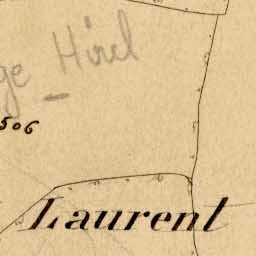 ge Hirel
506
Laurent